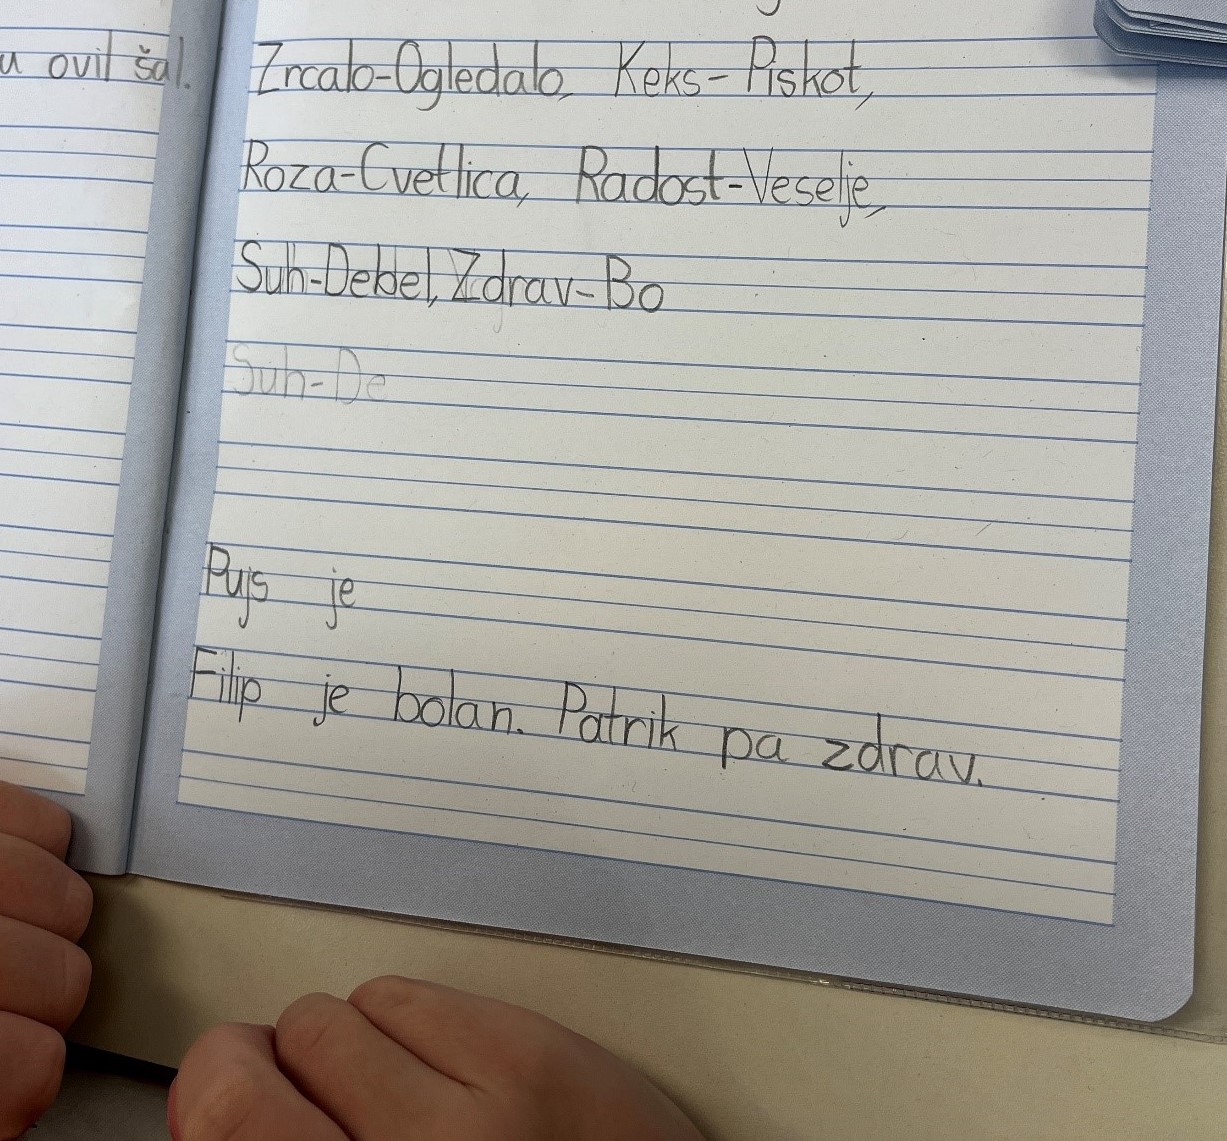 u ovil šal.
Zrcalo-Ogledalo, Keks-Piskot,
Roza-Cvetlica, Radost-Veselje,
Suh-Debel, Zdrav-Bo
Suh-De
Pujs je
Filip je bolan. Patrik pa zdrav.